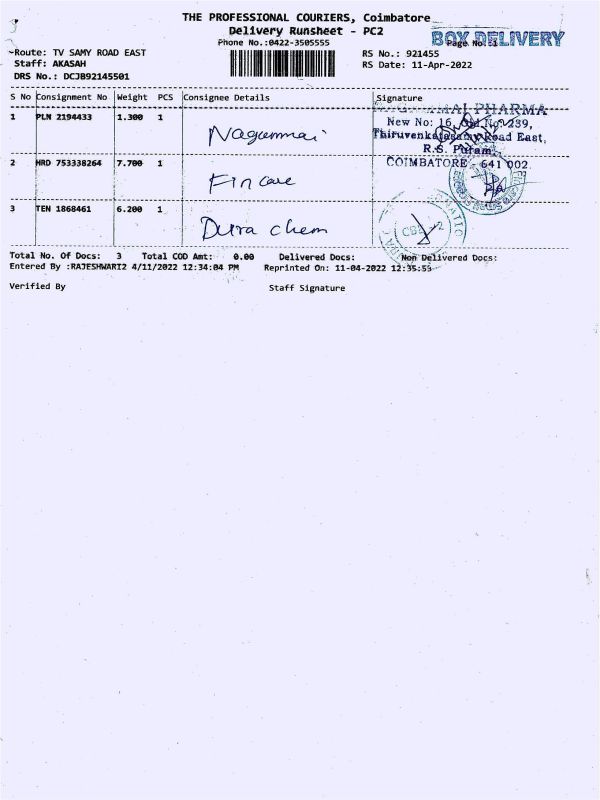 THE PROFESSIONAL COURIERS, Coimbatore
Delivery Runsheet - PC2
BOX DELIVERY
Phone No.:0422-3505555
Page No.:1
Route: TV SAMY ROAD EAST
RS No.: 921455
Staff: AKASAH
RS Date: 11-Apr-2022
DRS No.: DCJB92145501
S No Consignment No Weight PCS Consignee Details Signature
1 PLN 2194433 1.300 1 Nagammai
PHARMA
New No: 16, Old No: 239,
Thiruvenkatasamy Road East,
R.S. Puram,
COIMBATORE - 641 002.
2 HRD 753338264 7.700 1 Fincare
3 TEN 1868461 6.200 1 Dura chem
CBE-2
Total No. Of Docs: 3 Total COD Amt: 0.00 Delivered Docs: Non Delivered Docs:
Entered By :RAJESHWARI2 4/11/2022 12:34:04 PM Reprinted On: 11-04-2022 12:35:53
Verified By Staff Signature